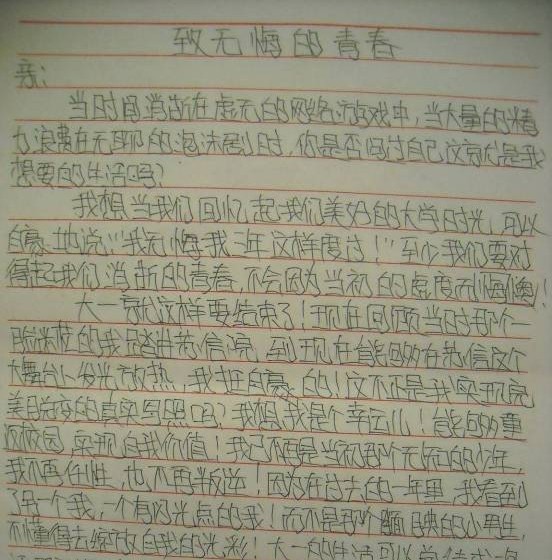 致无悔的青春
亲:
当时间消逝在虚无的网络游戏中,当大量的精
力浪费在无聊的泡沫剧时,你是否问过自己这就是我
想要的生活吗?
我想当我们回忆起我们美好的大学时光,可以
自豪地说:"我无悔我三年这样度过!"至少我们要对
得起我们消逝的青春,不会因为当初的虚度而悔懊!
大一就这样要结束了!现在回顾当时那个一
脸迷茫的我踏进苏信院,到现在能够在苏信这个
大舞台上发光放热,我挺自豪的!这不正是我实现完
美蜕变的真实写照吗?我想我是个幸运儿!能够重
返校园,实现自我价值!我已不再是当初那个无知的少年,
我不再任性,也不再叛逆!因为在过去的一年里,我看到
了另一个我,个有闪光点的我!而不是那个腼腆的小男生,
不懂得去绽放自我的光彩!大一的生活可以